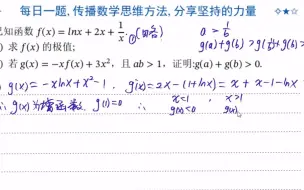 每日一题,传播数学思想方法,分享坚持的力量
知函数 f(x) = lnx + 2x + 1/x.
求 f(x) 的极值;
若 g(x) = −xf(x) + 3x², 且 ab > 1, 证明:g(a) + g(b) > 0.
a > 1/b
g(a)+g(b) > g(1/b)+g(b) >
g(x) = −xlnx + x² − 1. g'(x) = 2x − (1+lnx) = x + x − 1 − lnx
∴ g(x) 为增函数. g(1) = 0 ∴ x<1, x>1
g(x)<0 g(x)